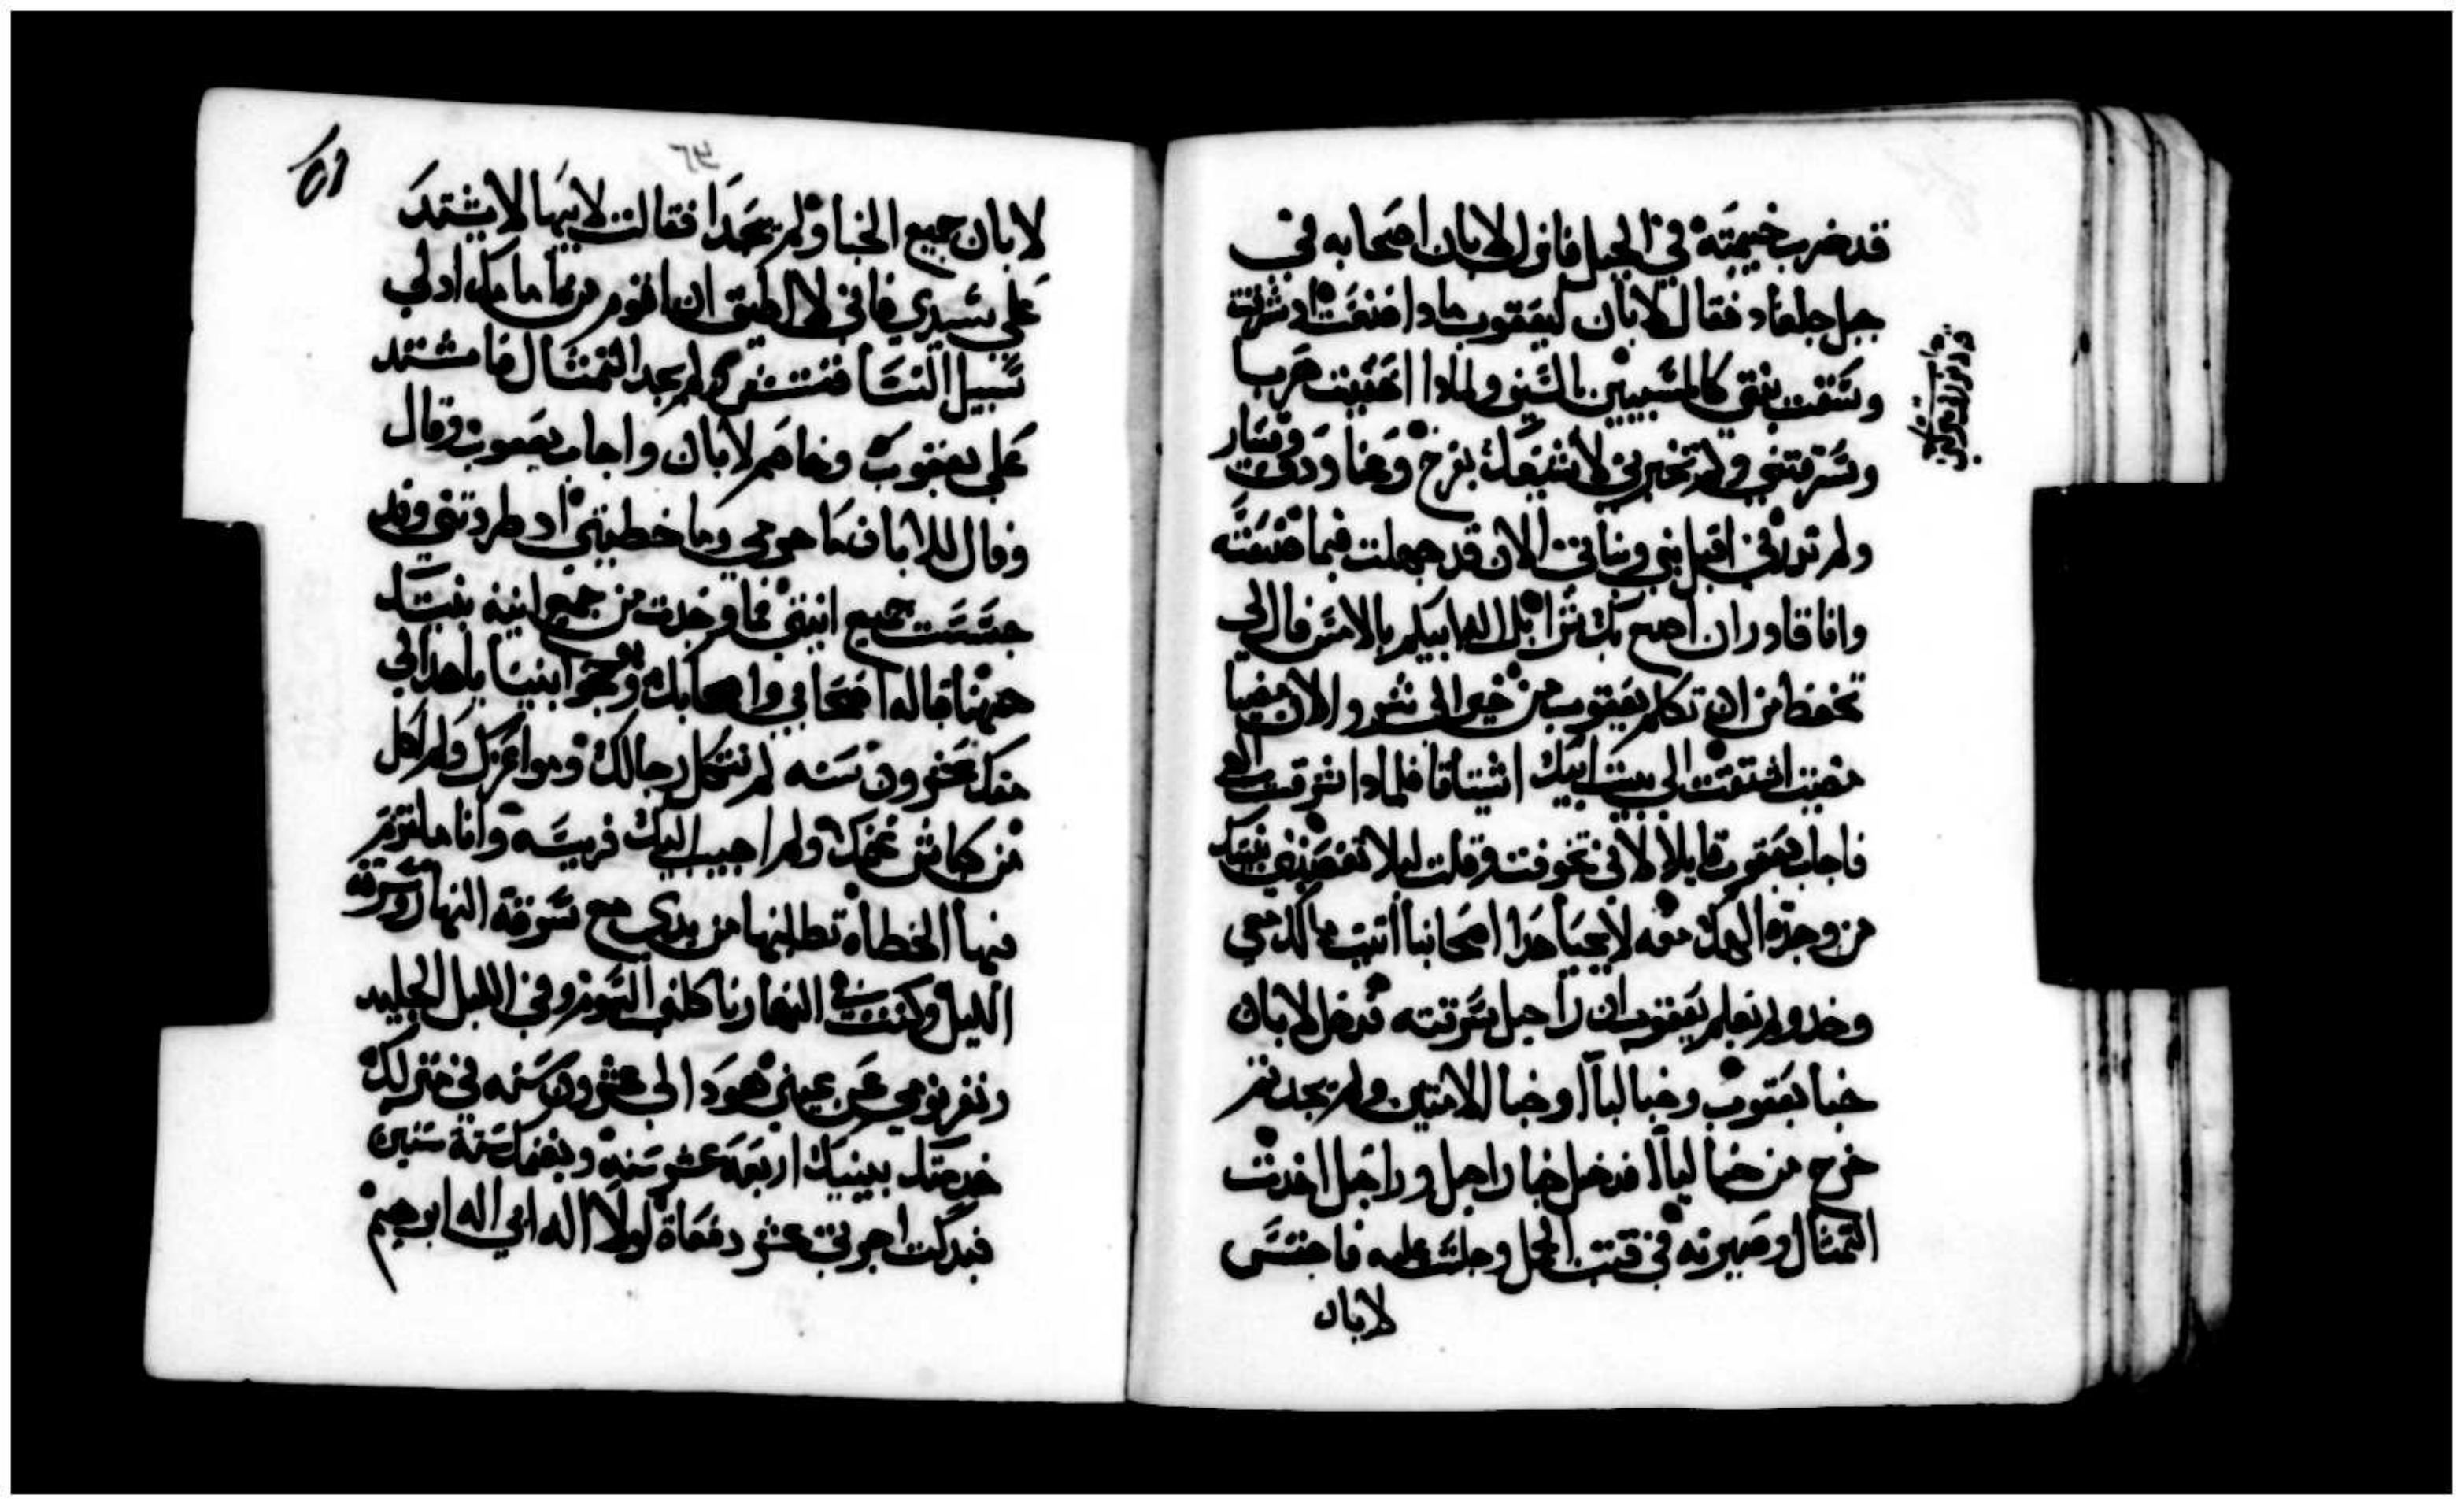 قد ضرب خيمته في الجبل فانزل لابان اصحابه في
جبل جلعاد فقال لابان ليعقوب مادا صنعت اد شرقت
وسقت بنتي كالمسبيين بالسبي ولمادا اختفيت هربا
وسرقتني ولم تخبرني لاشيعك بفرح وغنا ودف وقيتار
ولم تدرني اقبل بني وبناتي الان قد جهلت فيما صنعته
وانا قادر ان اصنع بك شرا بل الاه ابيكم بالامس قال لي
تحفظ من ان تكلم يعقوب من خير الى شر والان مضيا
مضيت اشتقت الى بيت ابيك اشتياقا فلمادا سرقت الهي
فاجاب يعقوب قايلا لاني تخوفت وقلت ليلا تغصبني بنتيك
من وجدة الهك معه لا يحيا هدا اصحابنا اتبت ما لك معي
وخد ولم يعلم يعقوب ان راحيل سرقته فدخل لابان
خبا يعقوب وخبا ليا وخبا الامتين ولم يجد ثم
خرج من خبا ليا فدخل خبا راحيل وراحيل اخدت
التمثال وصيرته في قتب الجمل وجلست عليه فاجتس
لابان
٥٦
لابان جميع الخبا ولم يجدا فقالت لابيها لا يشتد
علي سيدي فاني لا اطيق ان اقوم من امامك اد لي
سبيل النسا ففتش ولم يجد التمثال فاشتد
على يعقوب وخاصم لابان واجاب يعقوب وقال
وقال للابان ما جرمي وما خطيتي اد طردتني وقد
جسست جميع انيتي فما وجدت من جميع انية بيتك
ههنا قباله اصحابي واصحابك ويوبخوا بيننا باهدا لي
معك عشرون سنه لم تثكل رجالك ومواعزك ولم اكل
من كباش غنمك ولم اجيب اليك فريسه وانا ملتزم
فيها الخطاه تطلبها من يدي مع سرقة النهار وسرقة
الليل وكنت في النهار ياكلني السموم وفي الليل الجليد
ونفر نومي عن عيني هودا لي عشرون سنه في منزلك
خدمتك ببنتيك اربعة عشر سنه وبغنمك ستة سنين
فبدلت اجرتي عشر دفعاة لولا اله ابي اله ابرهيم